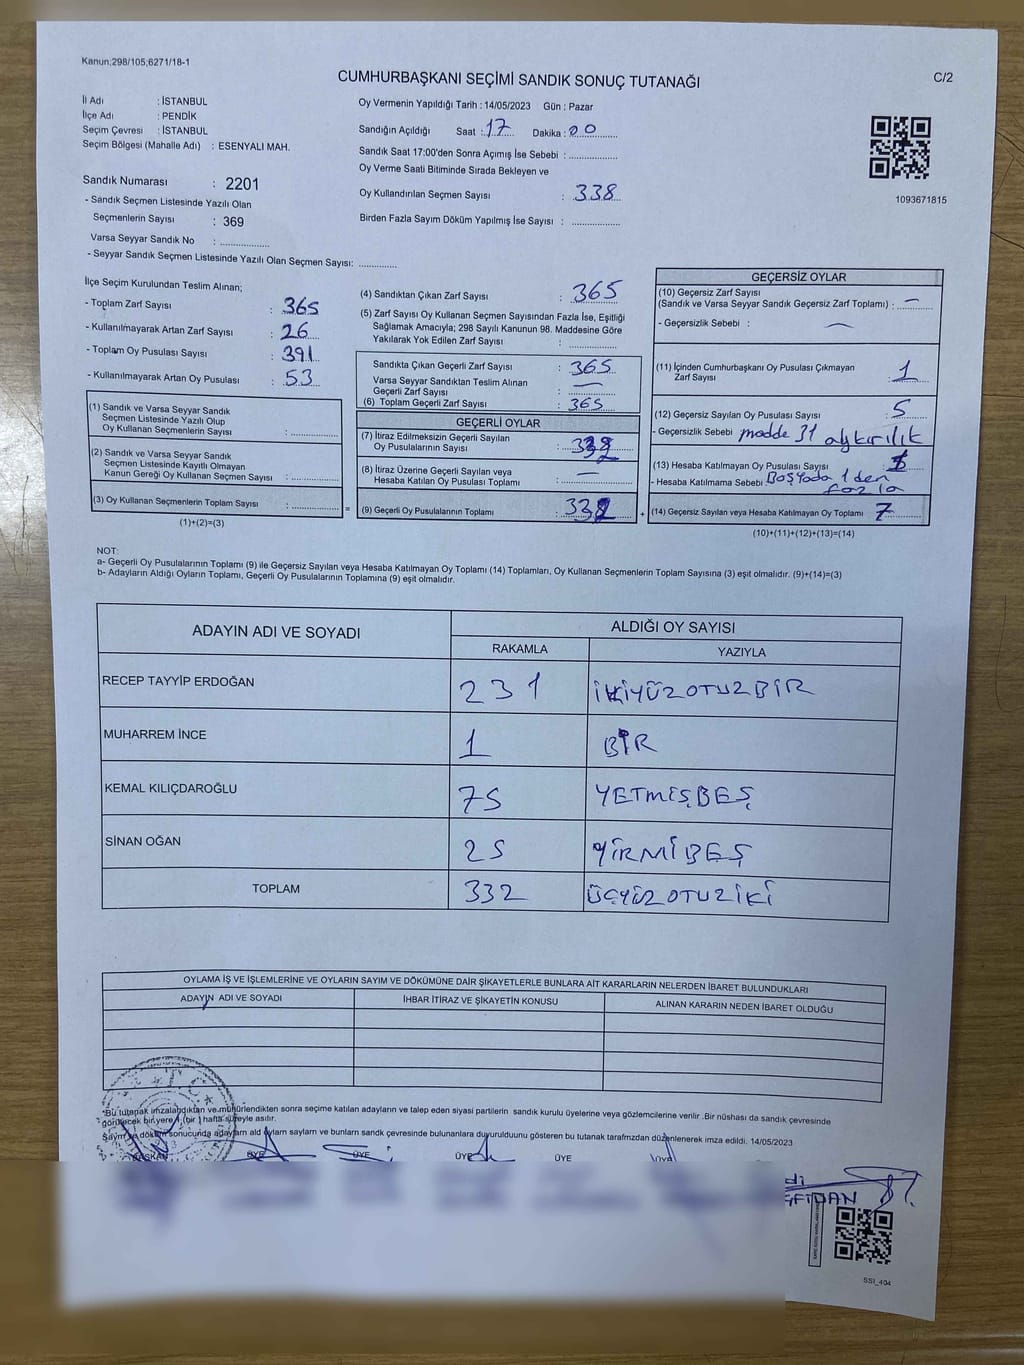 Kanun;298/105;6271/18-1
CUMHURBAŞKANI SEÇİMİ SANDIK SONUÇ TUTANAĞI
C/2
İl Adı : İSTANBUL
İlçe Adı : PENDİK
Seçim Çevresi : İSTANBUL
Seçim Bölgesi (Mahalle Adı) : ESENYALI MAH.
Sandık Numarası : 2201
- Sandık Seçmen Listesinde Yazılı Olan
Seçmenlerin Sayısı : 369
Varsa Seyyar Sandık No : ...............
- Seyyar Sandık Seçmen Listesinde Yazılı Olan Seçmen Sayısı: ............
Oy Vermenin Yapıldığı Tarih : 14/05/2023 Gün : Pazar
Sandığın Açıldığı Saat : 17 Dakika : 00
Sandık Saat 17:00'den Sonra Açımış İse Sebebi : ...............
Oy Verme Saati Bitiminde Sırada Bekleyen ve
Oy Kullandırılan Seçmen Sayısı : 338
Birden Fazla Sayım Döküm Yapılmış İse Sayısı : ...............
1093671815
İlçe Seçim Kurulundan Teslim Alınan;
- Toplam Zarf Sayısı : 365
- Kullanılmayarak Artan Zarf Sayısı : 26
- Toplam Oy Pusulası Sayısı : 391
- Kullanılmayarak Artan Oy Pusulası : 53
(1) Sandık ve Varsa Seyyar Sandık
Seçmen Listesinde Yazılı Olup
Oy Kullanan Seçmenlerin Sayısı : ...............
(2) Sandık ve Varsa Seyyar Sandık
Seçmen Listesinde Kayıtlı Olmayan
Kanun Gereği Oy Kullanan Seçmen Sayısı : ...............
(3) Oy Kullanan Seçmenlerin Toplam Sayısı : ............... =
(1)+(2)=(3)
(4) Sandıktan Çıkan Zarf Sayısı : 365
(5) Zarf Sayısı Oy Kullanan Seçmen Sayısından Fazla İse, Eşitliği
Sağlamak Amacıyla; 298 Sayılı Kanunun 98. Maddesine Göre
Yakılarak Yok Edilen Zarf Sayısı : ...............
Sandıkta Çıkan Geçerli Zarf Sayısı : 365
Varsa Seyyar Sandıktan Teslim Alınan
Geçerli Zarf Sayısı : —
(6) Toplam Geçerli Zarf Sayısı : 365
GEÇERLİ OYLAR
(7) İtiraz Edilmeksizin Geçerli Sayılan
Oy Pusulalarının Sayısı : 332
(8) İtiraz Üzerine Geçerli Sayılan veya
Hesaba Katılan Oy Pusulası Toplamı : —
(9) Geçerli Oy Pusulalarının Toplamı : 332 +
GEÇERSİZ OYLAR
(10) Geçersiz Zarf Sayısı
(Sandık ve Varsa Seyyar Sandık Geçersiz Zarf Toplamı) : —
- Geçersizlik Sebebi : —
(11) İçinden Cumhurbaşkanı Oy Pusulası Çıkmayan
Zarf Sayısı : 1
(12) Geçersiz Sayılan Oy Pusulası Sayısı : 5
- Geçersizlik Sebebi madde 31 aykırılık
(13) Hesaba Katılmayan Oy Pusulası Sayısı : 1
- Hesaba Katılmama Sebebi Boşyada 1 den
fazla
(14) Geçersiz Sayılan veya Hesaba Katılmayan Oy Toplamı 7
(10)+(11)+(12)+(13)=(14)
NOT:
a- Geçerli Oy Pusulalarının Toplamı (9) ile Geçersiz Sayılan veya Hesaba Katılmayan Oy Toplamı (14) Toplamları, Oy Kullanan Seçmenlerin Toplam Sayısına (3) eşit olmalıdır. (9)+(14)=(3)
b- Adayların Aldığı Oyların Toplamı, Geçerli Oy Pusulalarının Toplamına (9) eşit olmalıdır.
ADAYIN ADI VE SOYADI
ALDIĞI OY SAYISI
RAKAMLA YAZIYLA
RECEP TAYYİP ERDOĞAN 231 İKİYÜZOTUZBİR
MUHARREM İNCE 1 BİR
KEMAL KILIÇDAROĞLU 75 YETMİŞBEŞ
SİNAN OĞAN 25 YİRMİBEŞ
TOPLAM 332 ÜÇYÜZOTUZİKİ
OYLAMA İŞ VE İŞLEMLERİNE VE OYLARIN SAYIM VE DÖKÜMÜNE DAİR ŞİKAYETLERLE BUNLARA AİT KARARLARIN NELERDEN İBARET BULUNDUKLARI
ADAYIN ADI VE SOYADI İHBAR İTİRAZ VE ŞİKAYETİN KONUSU ALINAN KARARIN NEDEN İBARET OLDUĞU
*Bu tutanak imzalandıktan ve mühürlendikten sonra seçime katılan adayların ve talep eden siyasi partilerin sandık kurulu üyelerine veya gözlemcilerine verilir. Bir nüshası da sandık çevresinde
görülecek bir yere 1 (bir) hafta süreyle asılır.
Sayım ve döküm sonucunda adayların ald oyların saylam ve bunların sandk çevresinde bulunanlara duyurulduunu gösteren bu tutanak tarafmzdan düzenlenerek imza edildi. 14/05/2023
BAŞKAN ÜYE ÜYE ÜYE ÜYE ÜYE
SSI_404